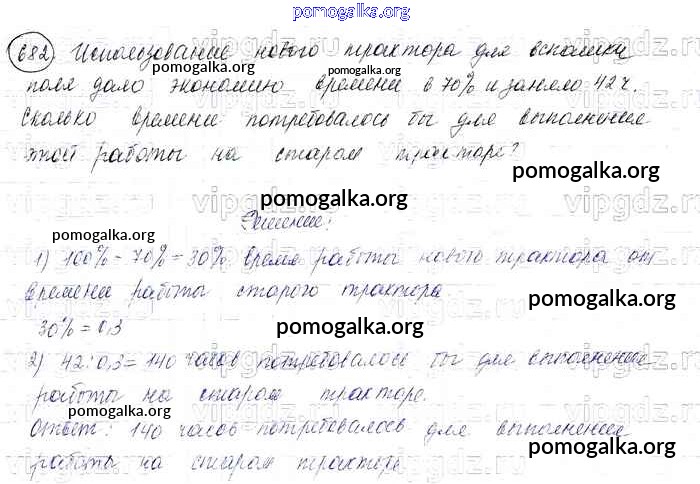 pomogalka.org
682 Использование нового трактора для вспашки
pomogalka.org pomogalka.org
поля дало экономию времени в 70% и заняло 42 ч.
Сколько времени потребовалось бы для выполнения
этой работы на старом тракторе?
pomogalka.org
vipgdz.ru
pomogalka.org
Решение:
pomogalka.org
1) 100% - 70% = 30% время работы нового трактора от
времени работы старого трактора.
pomogalka.org
30% = 0,3
pomogalka.org
2) 42:0,3 = 140 часов потребовалось бы для выполнения
работы на старом тракторе.
pomogalka.org
Ответ: 140 часов потребовалось для выполнения
pomogalka.org
работы на старом тракторе.